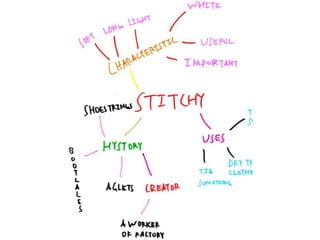 WHITE
SOFT
LONG
LIGHT
USEFUL
CHARACTERISTIC
IMPORTANT
STITCHY
SHOESTRINGS
USES
HYSTORY
BOOTLACES
TIE
SOMETHING
DRY
AGLETS
CREATOR
A WORKER
OF FACTORY